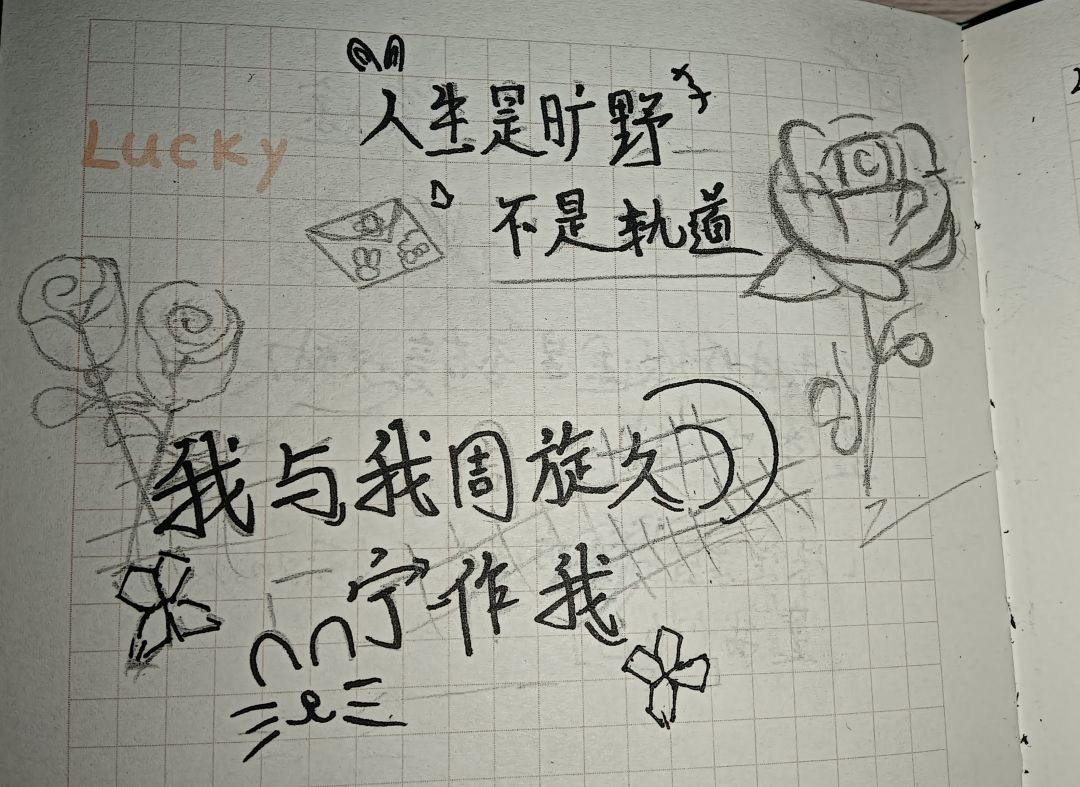 人生是旷野
Lucky
不是轨道
我与我周旋久
宁作我